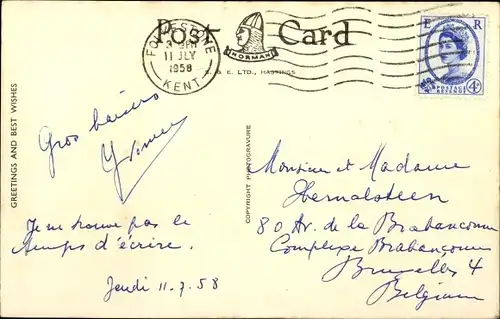 Post Card
NORMAN
FOLKESTONE
11 JLY
1958
KENT
E R
4D
POSTAGE REVENUE
S. & E. LTD., HASTINGS
GREETINGS AND BEST WISHES
Gros baisers
Je ne trouve pas le
temps d'écrire.
Jeudi 11.7.58
COPYRIGHT PHOTOGRAVURE
Monsieur et Madame
Hernalsteen
80 Av. de la Brabançonne
Complexe Brabançonne
Bruxelles 4
Belgium